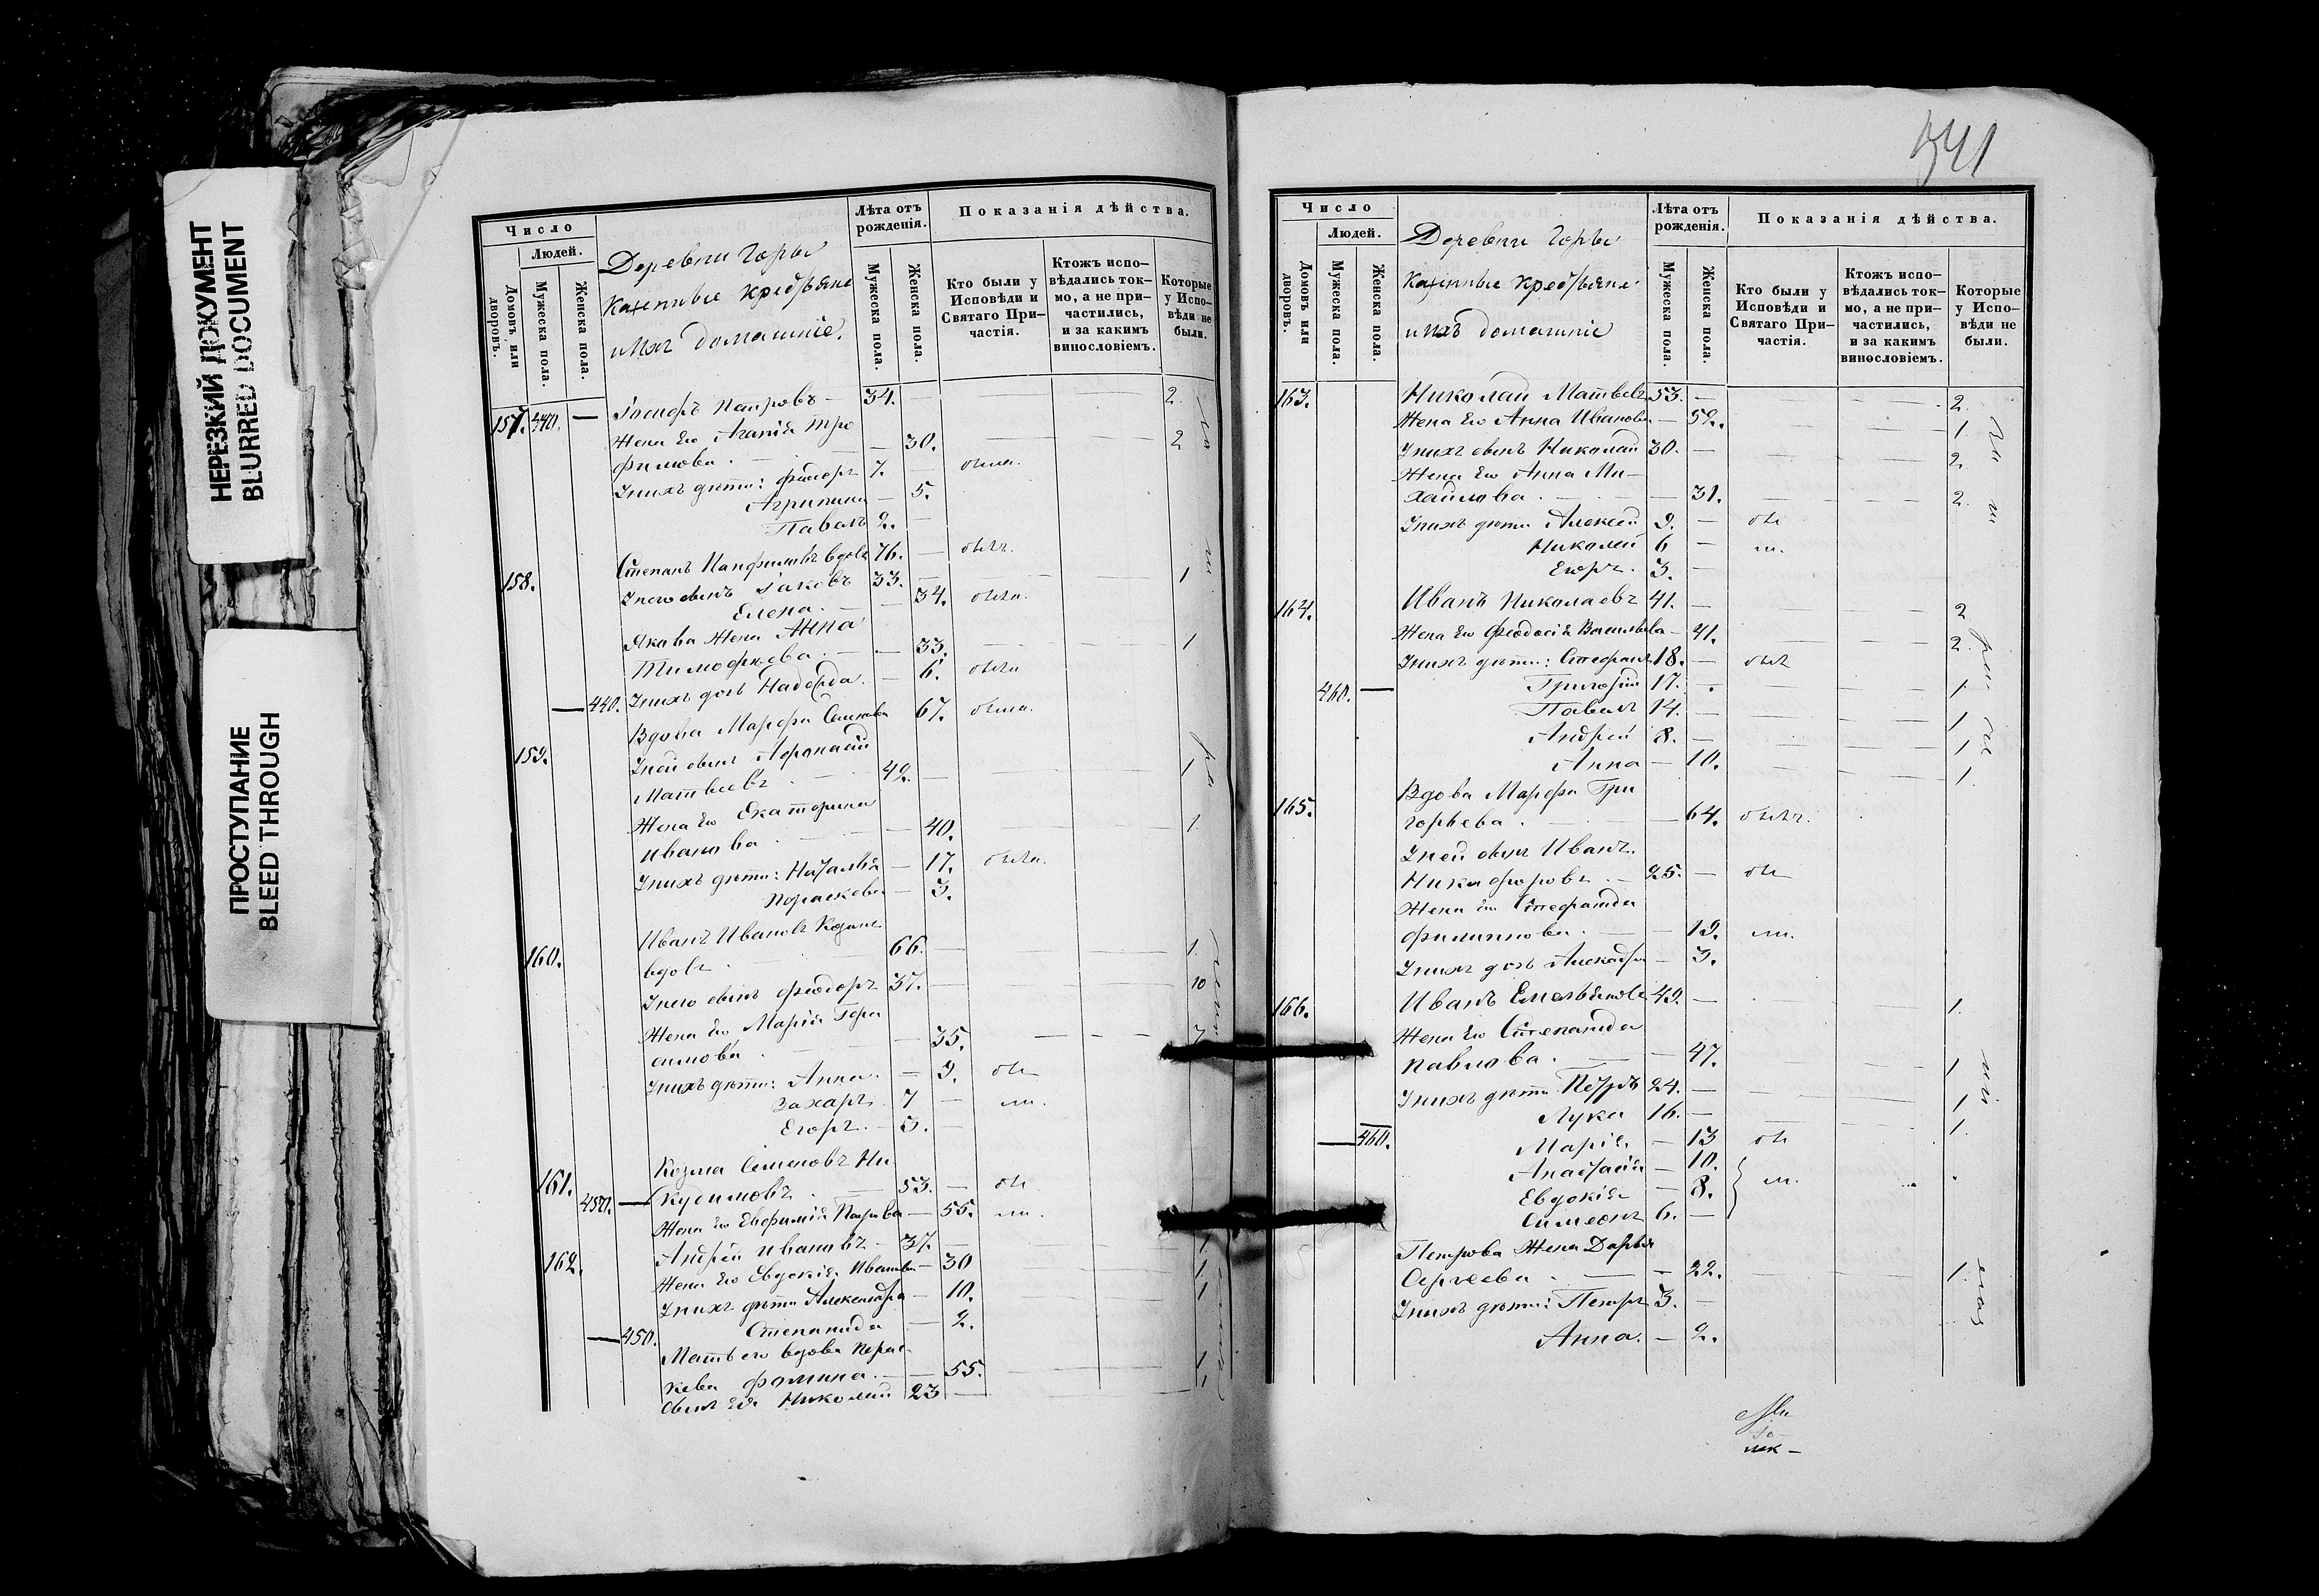 НЕРЕЗКИЙ ДОКУМЕНТ
BLURRED DOCUMENT
ПРОСТУПАНИЕ
BLEED THROUGH
Число
Людей.
Домовъ или дворовъ.
Мужеска пола.
Женска пола.
Деревни Горы
Казенные крестьяне
и ихъ домашніе.
Лѣта отъ рожденія.
Мужеска пола.
Женска пола.
Показанія дѣйства.
Кто были у Исповѣди и Святаго При-частія.
Ктожъ испо-вѣдались ток-мо, а не при-частились, и за какимъ винословіемъ.
Которые у Испо-вѣди не были.
157. 440. — Іосифъ Петровъ — 34. — 2
Жена Его Агапія Тро
фимова. — 30. 2
У нихъ дѣти: Феодоръ 7.
Агрипина — 5.
Павелъ 2. —
158. Степанъ Панфиловъ вдовъ 76. —
У него сынъ Іаковъ 33. — 1
Елена. — 34.
Якова Жена Анна
Тимофеева. — 33. 1
— 440. У нихъ дочь Надежда. — 6.
159. Вдова Марфа Семенова 67.
У ней сынъ Афонасій
Матвеевъ 42. — 1
Жена Его Екатерина
Иванова — 40. 1
У нихъ дѣти: Наталья — 17.
Пораскева — 3.
160. Иванъ Ивановъ
вдовъ 66. — 1
У него сынъ Феодоръ 37. — 10
Жена Его Марія Гера
симова — 35. 7
У нихъ дѣти: Анна. — 9.
Захаръ. 7 —
Егоръ. — 3. —
161. Козма Семеновъ Ни
450. — кусимовъ 53. —
Жена Его Евфимія Петрова — 55.
162. Андрей Ивановъ — 37. — 1
Жена Его Евдокія Иванова — 30 1
У нихъ дѣти Александра — 10. 1
Степанида — 2.
— 450. Мать его вдова Порас
кева Фомина. — 55. 1
сынъ Ея Николай 23 — 1
541
Число
Людей.
Домовъ или дворовъ.
Мужеска пола.
Женска пола.
Деревни Горы
Казенные крестьяне
и ихъ домашніе
Лѣта отъ рожденія.
Мужеска пола.
Женска пола.
Показанія дѣйства.
Кто были у Исповѣди и Святаго При-частія.
Ктожъ испо-вѣдались ток-мо, а не при-частились, и за какимъ винословіемъ.
Которые у Испо-вѣди не были.
163. Николай Матвеевъ 53. — 2
Жена Его Анна Иванова — 52. 1
У нихъ сынъ Николай 30. — 2
Жена Его Анна Ми-
хайлова. — 31. 2
У нихъ дѣти Алексей 9. —
Николай 6 —
Егоръ. 3. —
164. Иванъ Николаевъ 41. — 2
Жена Его Феодосія Васильева — 41. 2
У нихъ дѣти: Стефанъ 18. —
460. — Григорій 17. 1
Павелъ 14. — 1
Андрей 8. — 1
Анна — 10. 1
165. Вдова Марфа Гри
горьева. — 64.
У ней сынъ Иванъ.
Никифоровъ. — 25. —
Жена Его Стефанида
Филиппова. — 19.
У нихъ дочь Александра — 3.
166. Иванъ Емельяновъ 49. — 1
Жена Его Степанида
Павлова. — 47. 1
У нихъ дѣти Петръ 24. — 1
Лука 16. — 1
— 460. Марія — 13
Анастасія — 10.
Евдокія — 8.
Симеонъ 6. —
Петрова Жена Дарья
Сергеева. — 22. 1
У нихъ дѣти: Петръ 3. —
Анна. — 2.